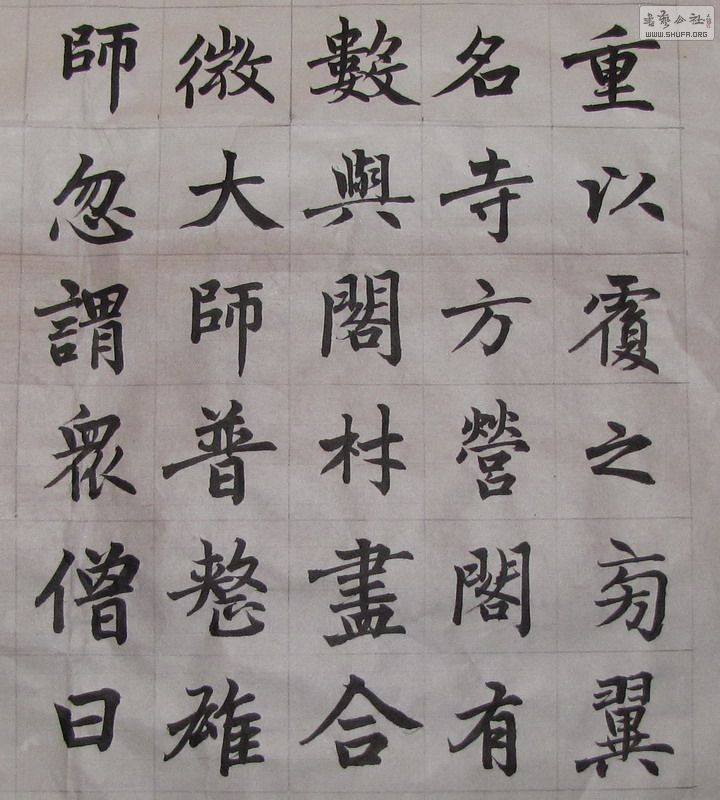 重以覆之旁翼
名寺方營閣有
數與閣材盡合
微大師普整雄
師忽謂眾僧曰
书艺公社
WWW.SHUFA.ORG